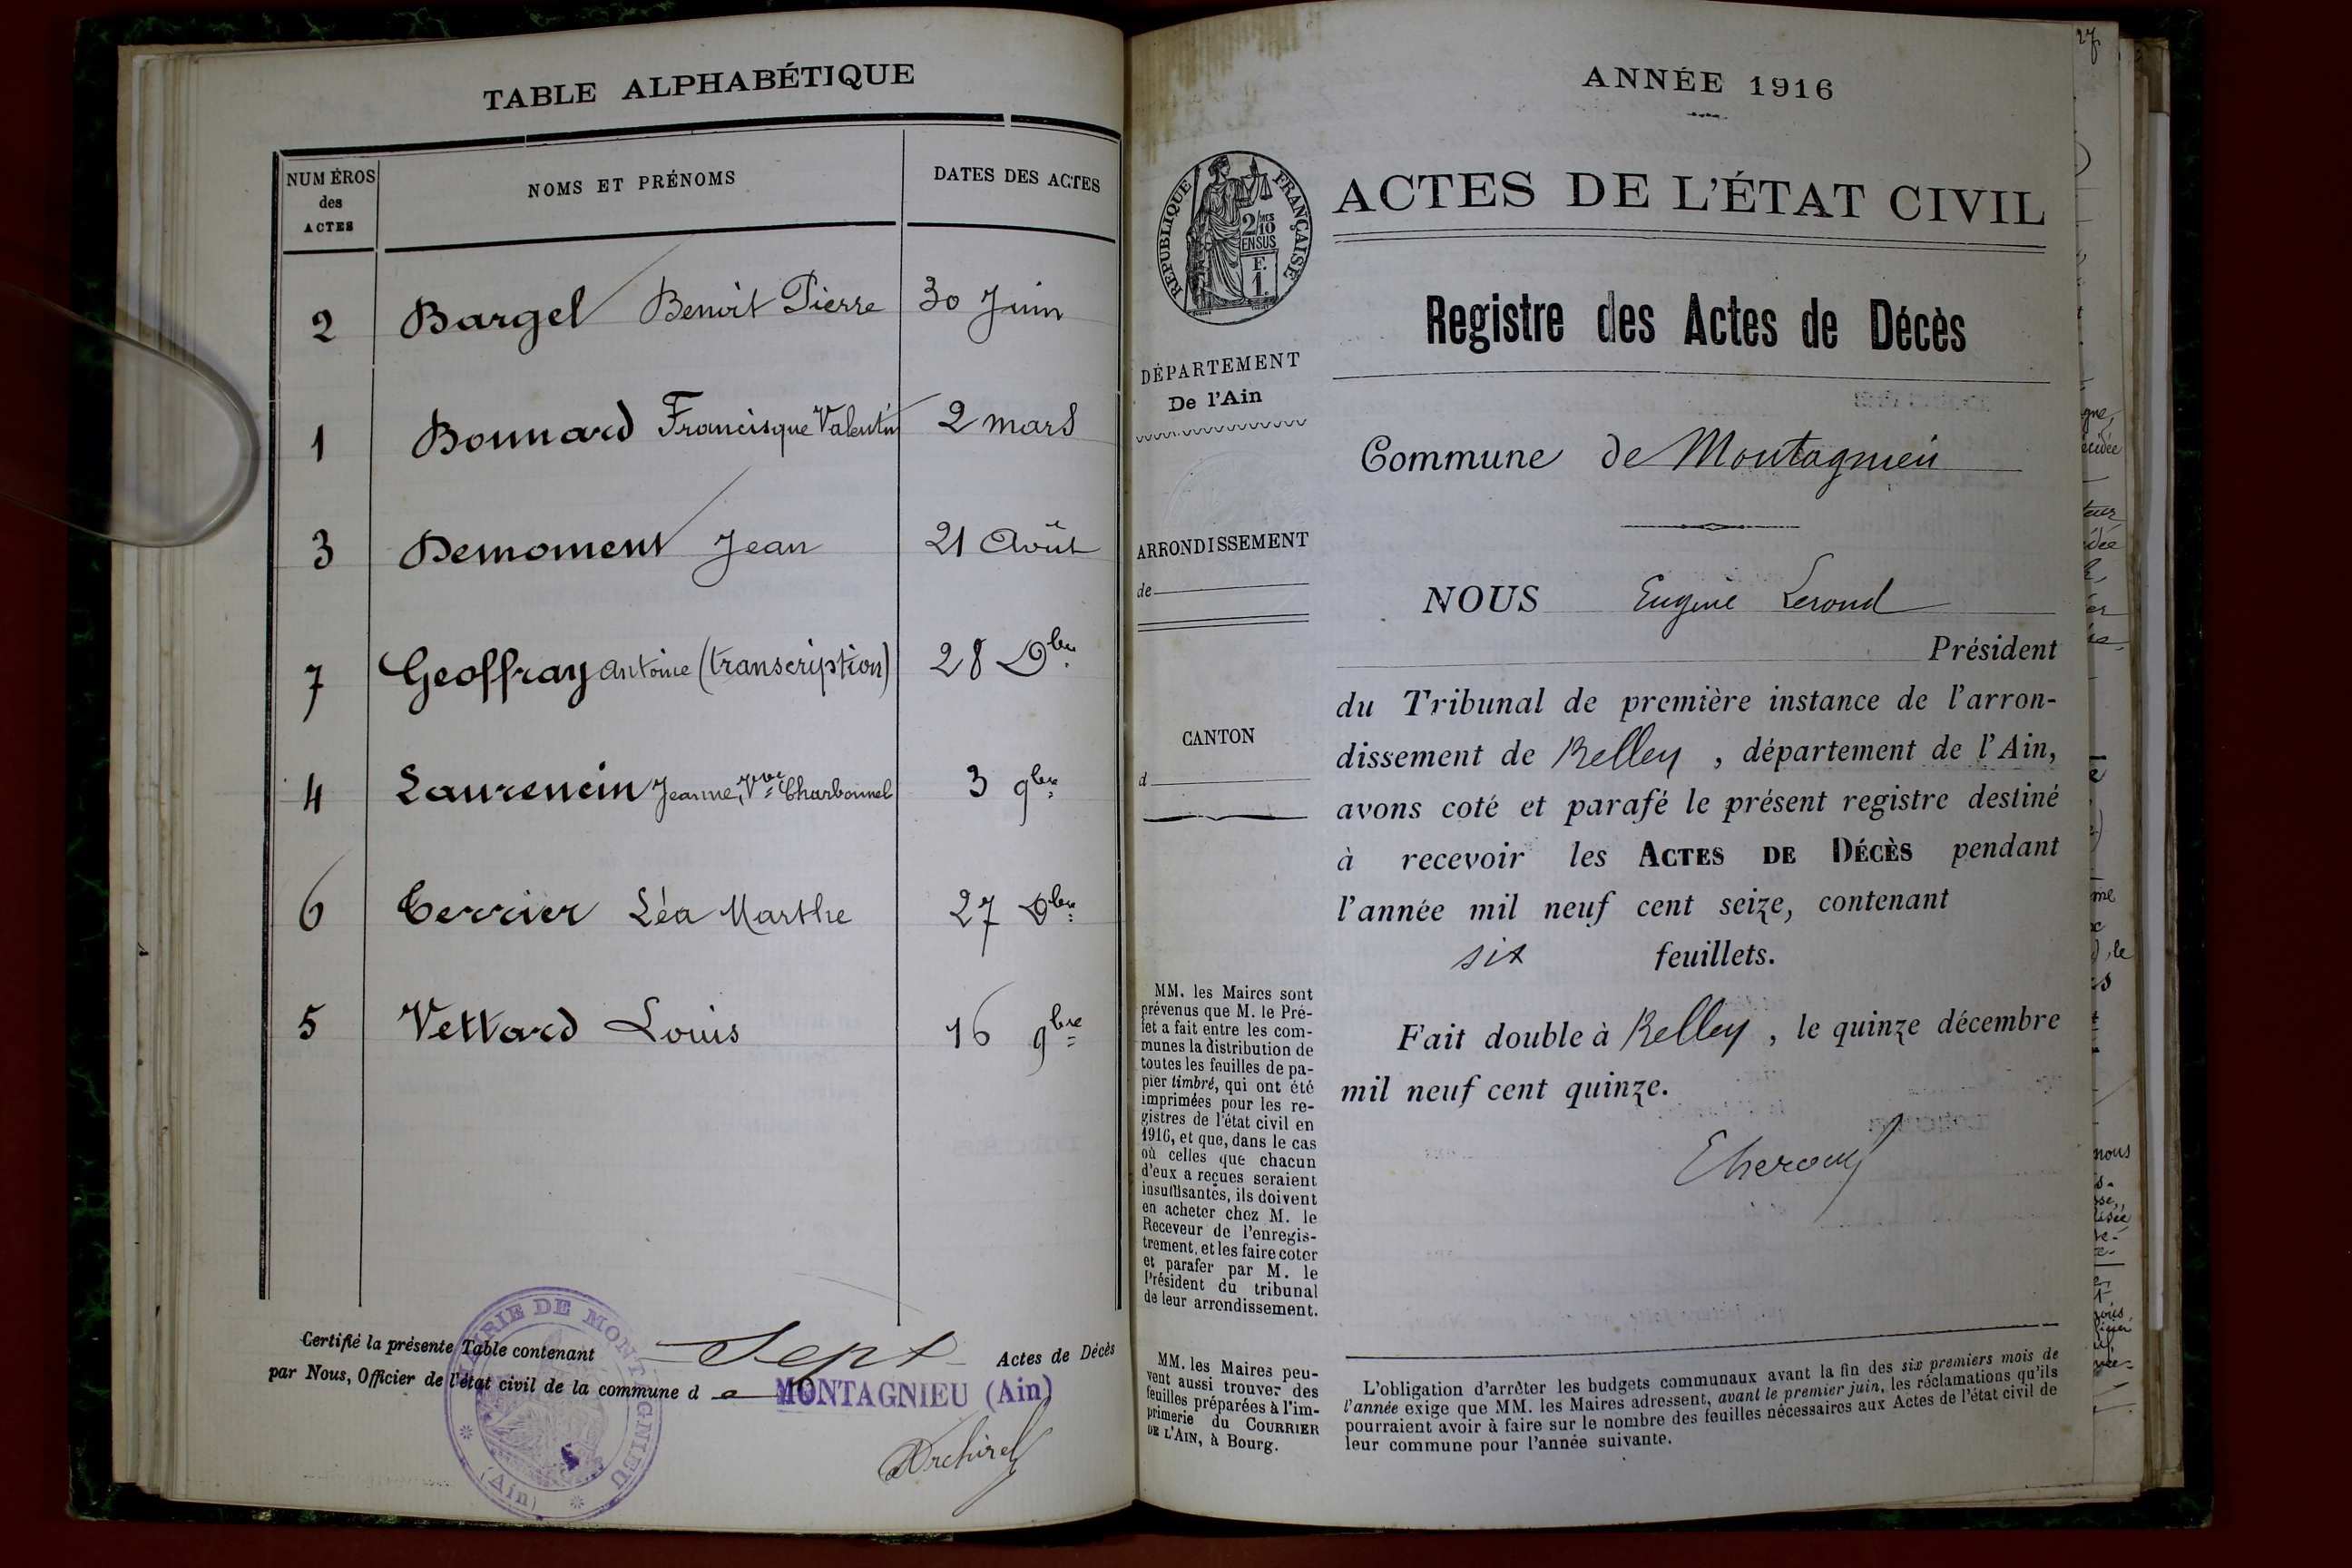 TABLE ALPHABÉTIQUE
NUMÉROS
des
ACTES
NOMS ET PRÉNOMS
DATES DES ACTES
2 Bargel Benoit Pierre 30 Juin
1 Bonnard Francisque Valentin 2 mars
3 Demoment Jean 21 Août
7 Geoffray Antoine (transcription) 28 Xbre
4 Laurencin Jeanne, Vve Charbonnel 3 9bre
6 Terrier Léa Marthe 27 Xbre
5 Vettard Louis 16 9bre
Certifié la présente Table contenant Sept Actes de Décès
par Nous, Officier de l'état civil de la commune de MONTAGNIEU (Ain)
MAIRIE DE MONTAGNIEU
(Ain)
27
ANNÉE 1916
ACTES DE L'ÉTAT CIVIL
RÉPUBLIQUE FRANÇAISE
2/10mes
EN SUS
F.
1.
Registre des Actes de Décès
DÉPARTEMENT
De l'Ain
Commune de Montagnieu
ARRONDISSEMENT
de
CANTON
d
NOUS Eugène Lerond
Président
du Tribunal de première instance de l'arron-
dissement de Belley, département de l'Ain,
avons coté et parafé le présent registre destiné
à recevoir les ACTES DE DÉCÈS pendant
l'année mil neuf cent seize, contenant
six feuillets.
Fait double à Belley, le quinze décembre
mil neuf cent quinze.
MM. les Maires sont
prévenus que M. le Pré-
fet a fait entre les com-
munes la distribution de
toutes les feuilles de pa-
pier timbré, qui ont été
imprimées pour les re-
gistres de l'état civil en
1916, et que, dans le cas
où celles que chacun
d'eux a reçues seraient
insuffisantes, ils doivent
en acheter chez M. le
Receveur de l'enregis-
trement, et les faire coter
et parafer par M. le
Président du tribunal
de leur arrondissement.
MM. les Maires peu-
vent aussi trouver des
feuilles préparées à l'im-
primerie du COURRIER
DE L'AIN, à Bourg.
L'obligation d'arrêter les budgets communaux avant la fin des six premiers mois de
l'année exige que MM. les Maires adressent, avant le premier juin, les réclamations qu'ils
pourraient avoir à faire sur le nombre des feuilles nécessaires aux Actes de l'état civil de
leur commune pour l'année suivante.